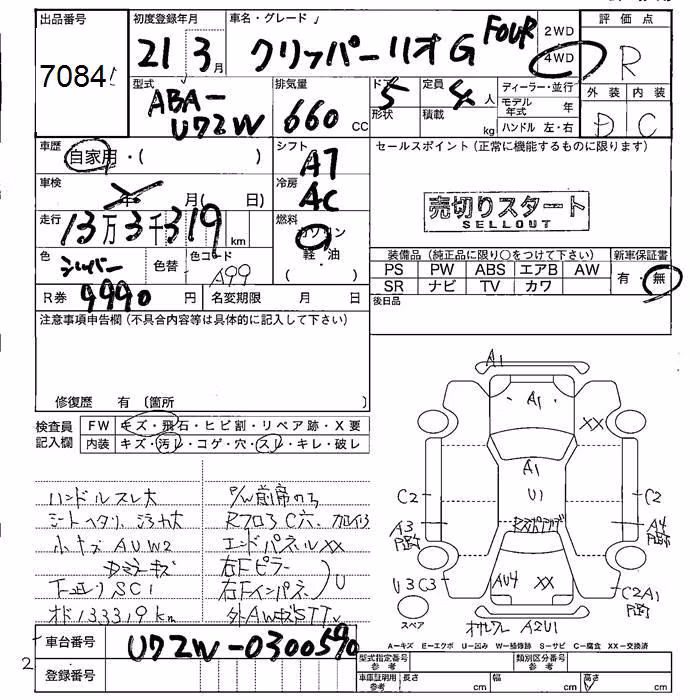 出品番号
7084
初度登録年月
21 3月
車名・グレード
クリッパーリオG FOUR
2WD
4WD
評価点
R
外装 内装
D C
型式
ABA-
U72W
排気量
660 cc
ドア
5
形状
定員
4 人
積載
kg
ディーラー・並行
モデル年式 年
ハンドル 左・右
車歴
自家用・( )
シフト
AT
セールスポイント(正常に機能するものに限ります)
売切りスタート
SELLOUT
車検
年 月( 日)
冷房
AC
走行
13万3千319 km
燃料
ガソリン
軽・油
( )
色
シルバー
色替
色コード
A99
装備品(純正品に限り○をつけて下さい)
新車保証書
PS PW ABS エアB AW
有・無
SR ナビ TV カワ
後日品
R券 9990 円
名変期限 月 日
注意事項申告欄(不具合内容等は具体的に記入して下さい)
修復歴 有 (箇所
検査員
記入欄
FW キズ・飛石・ヒビ割・リペア跡・X要
内装 キズ・汚レ・コゲ・穴・スレ・キレ・破レ
ハンドルスレ大
P/W前席のみ
シートヘタリ、汚れ大
小キズAUW2
エンドパネルXX
右Fピラー
下廻りSC1
右Fインパネ
U
オド133319km
A1
A1
XX
A1
U1
C2
C2
A3
A4
AU4
XX
U3C3
C2A1
スペア
A2U1
A=キズ E=エクボ U=凹み W=補修跡 S=サビ C=腐食 XX=交換済
車台番号
U72W-0300590
登録番号
2
型式指定番号
参考
類別区分番号
参考
車庫証明用
参考
長さ cm
幅 cm
高さ cm